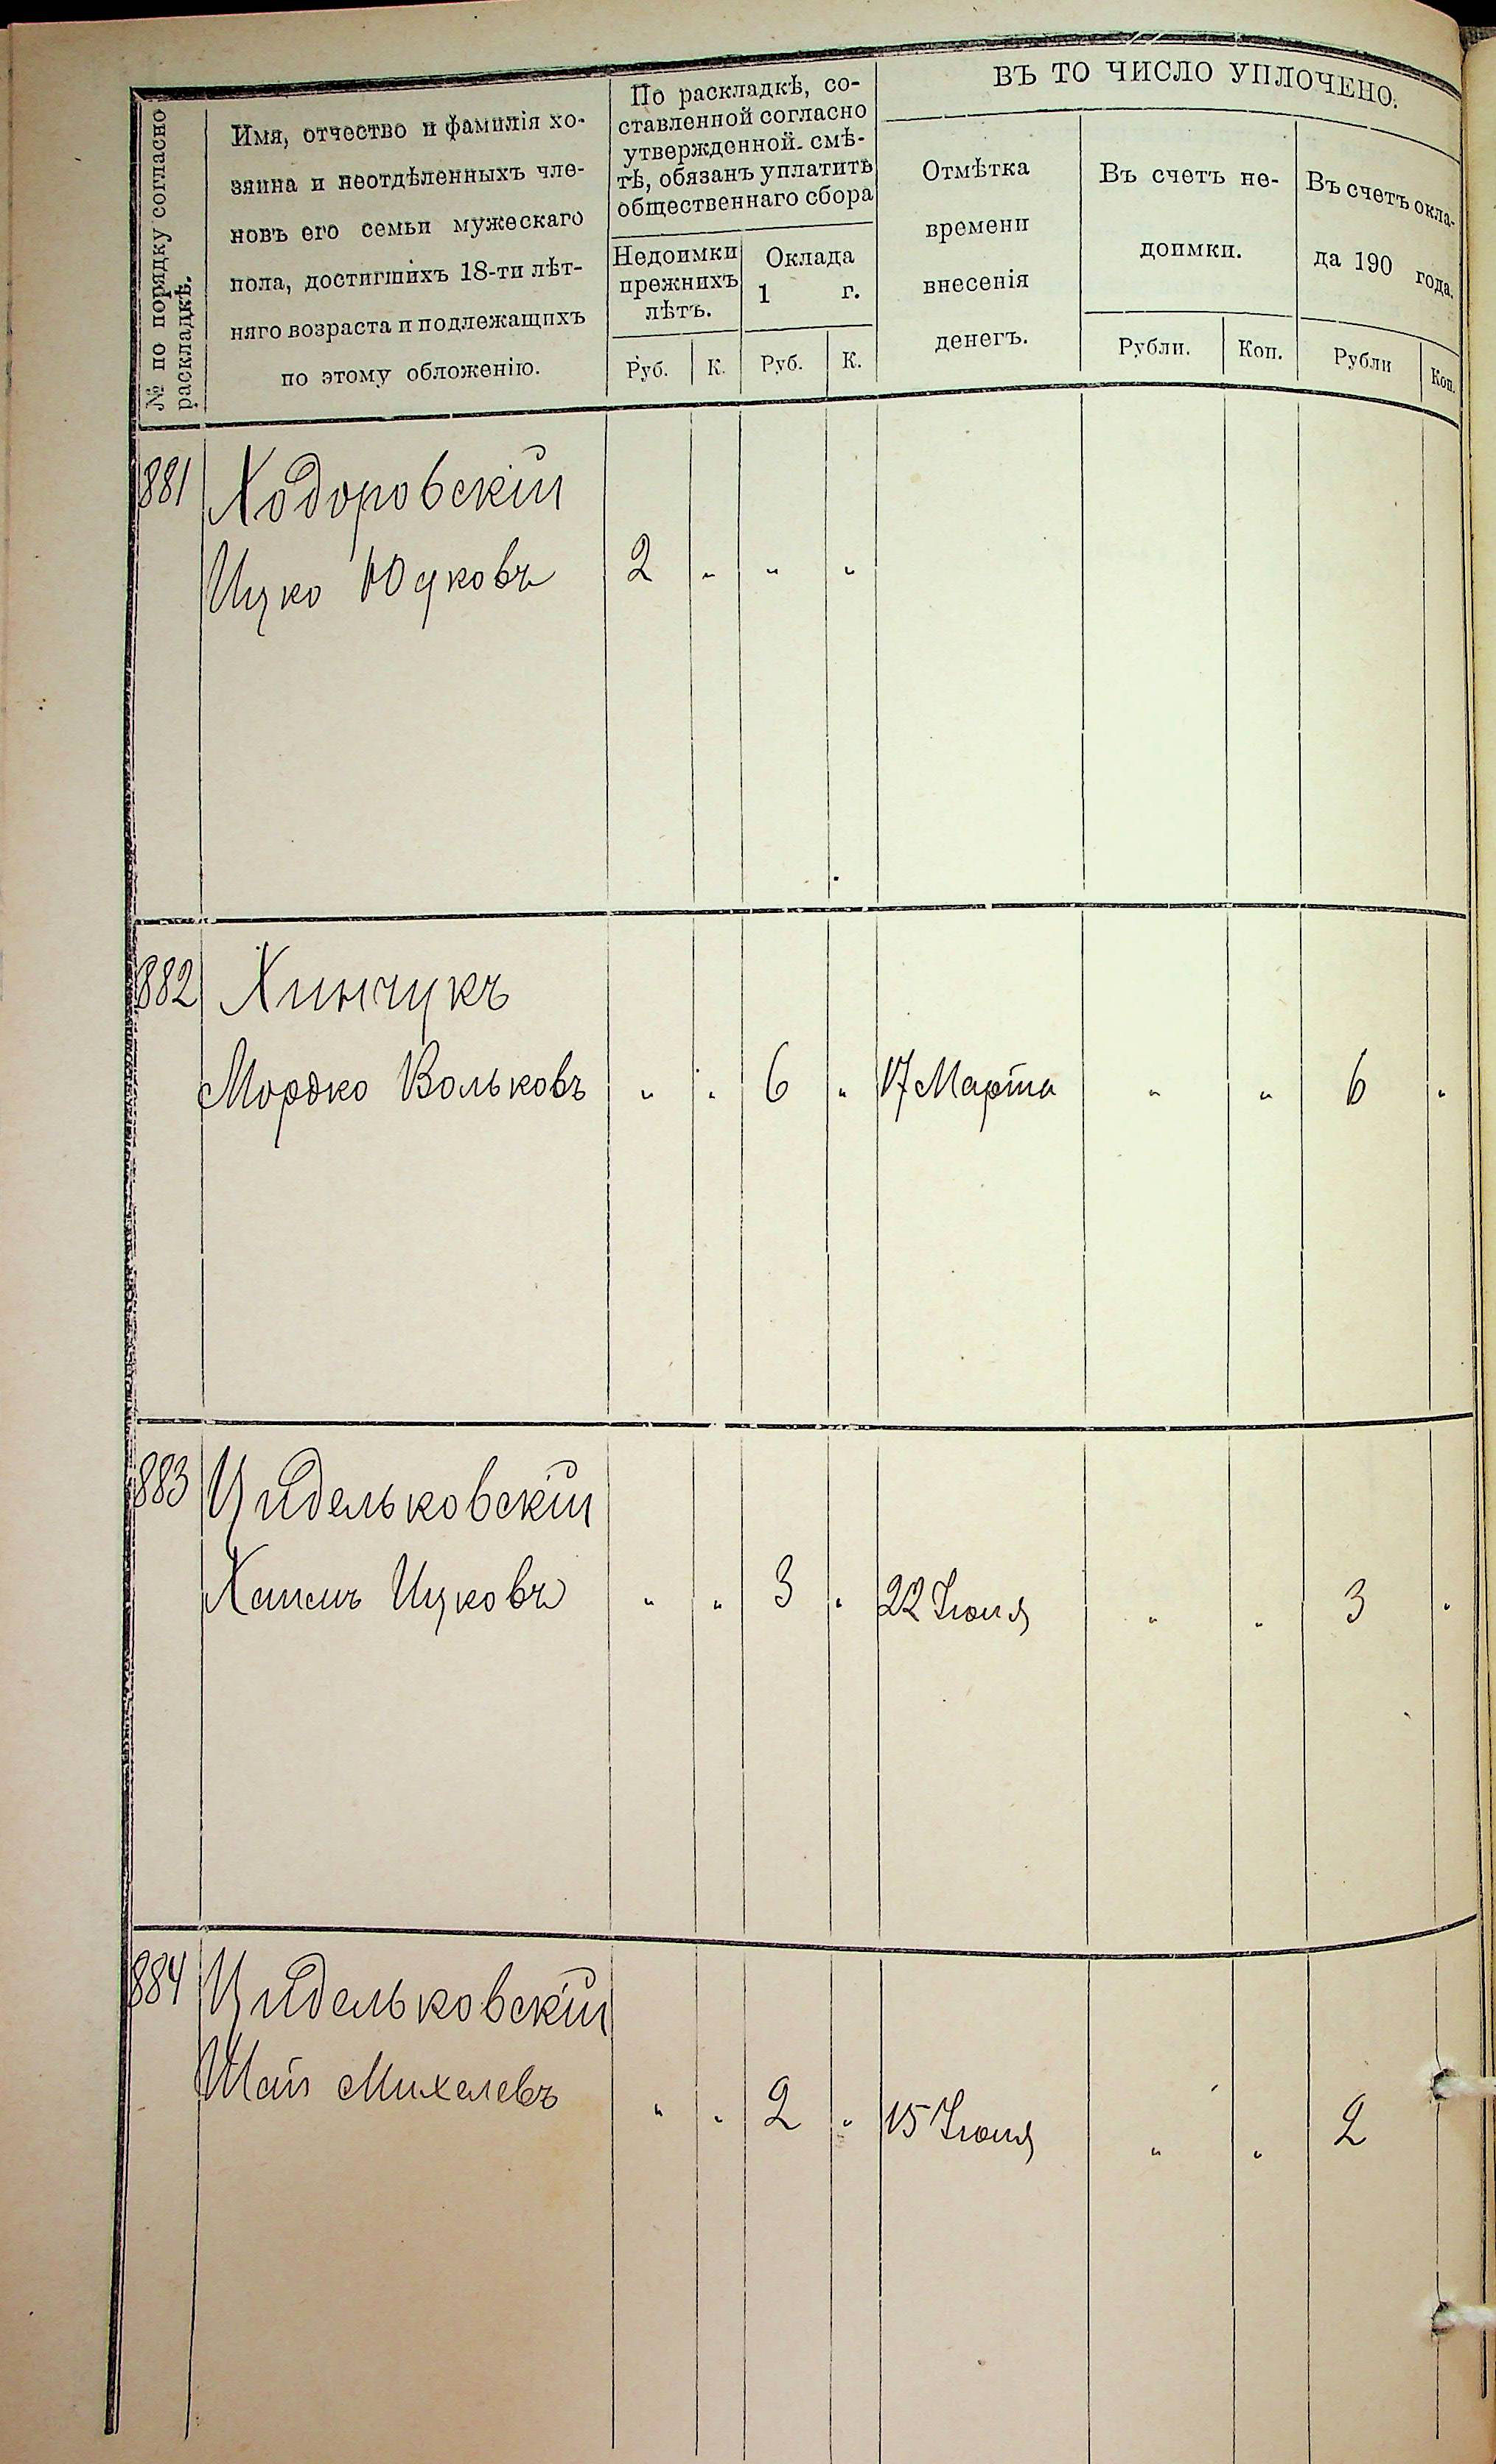 № по порядку согласно
раскладкѣ.
Имя, отчество и фамилія хо-
зяина и неотдѣленныхъ чле-
новъ его семьи мужескаго
пола, достигшихъ 18-ти лѣт-
няго возраста и подлежащихъ
по этому обложенію.
По раскладкѣ, со-
ставленной согласно
утвержденной смѣ-
тѣ, обязанъ уплатить
общественнаго сбора
Недоимки
прежнихъ
лѣтъ.
Руб. К.
Оклада
1 г.
Руб. К.
ВЪ ТО ЧИСЛО УПЛОЧЕНО.
Отмѣтка
времени
внесенія
денегъ.
Въ счетъ не-
доимки.
Рубли. Коп.
Въ счетъ окла-
да 190 года.
Рубли Коп.
881 Ходоровскій
Ицко Юдковъ 2 " " "
882 Хинчукъ
Мордко Вольковъ " " 6 " 17 Марта " " 6 "
883 Цидельковскій
Хаимъ Ицковъ " " 3 " 22 Іюня " " 3 "
884 Цидельковскій
Шая Михелевъ " " 2 " 15 Іюня " " 2